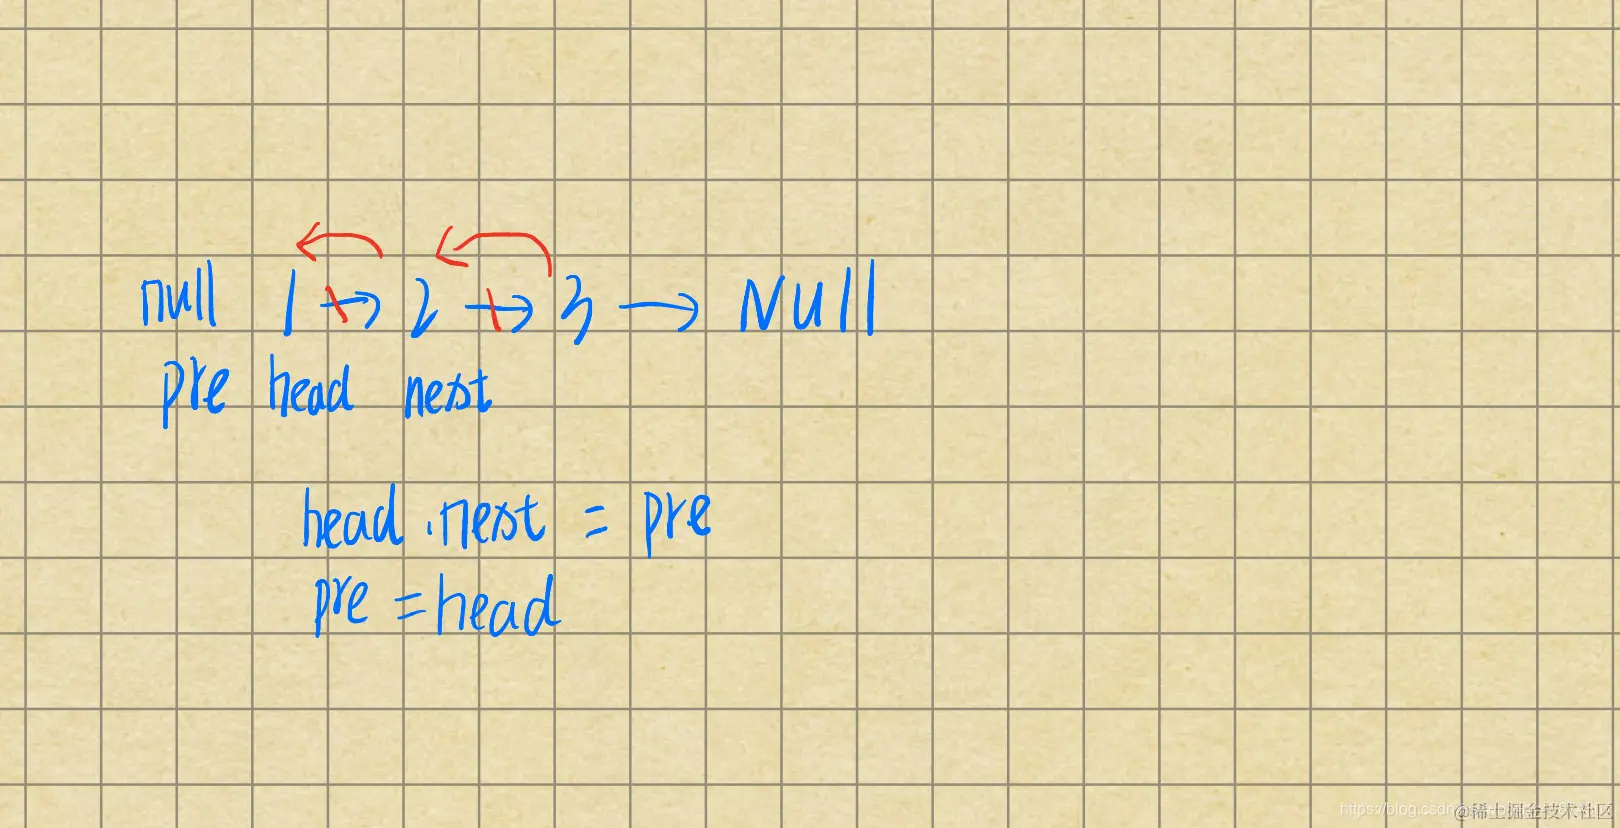 null 1 → 2 → 3 → Null
pre head next
head.next = pre
pre = head
https://blog.csdn
@稀土掘金技术社区